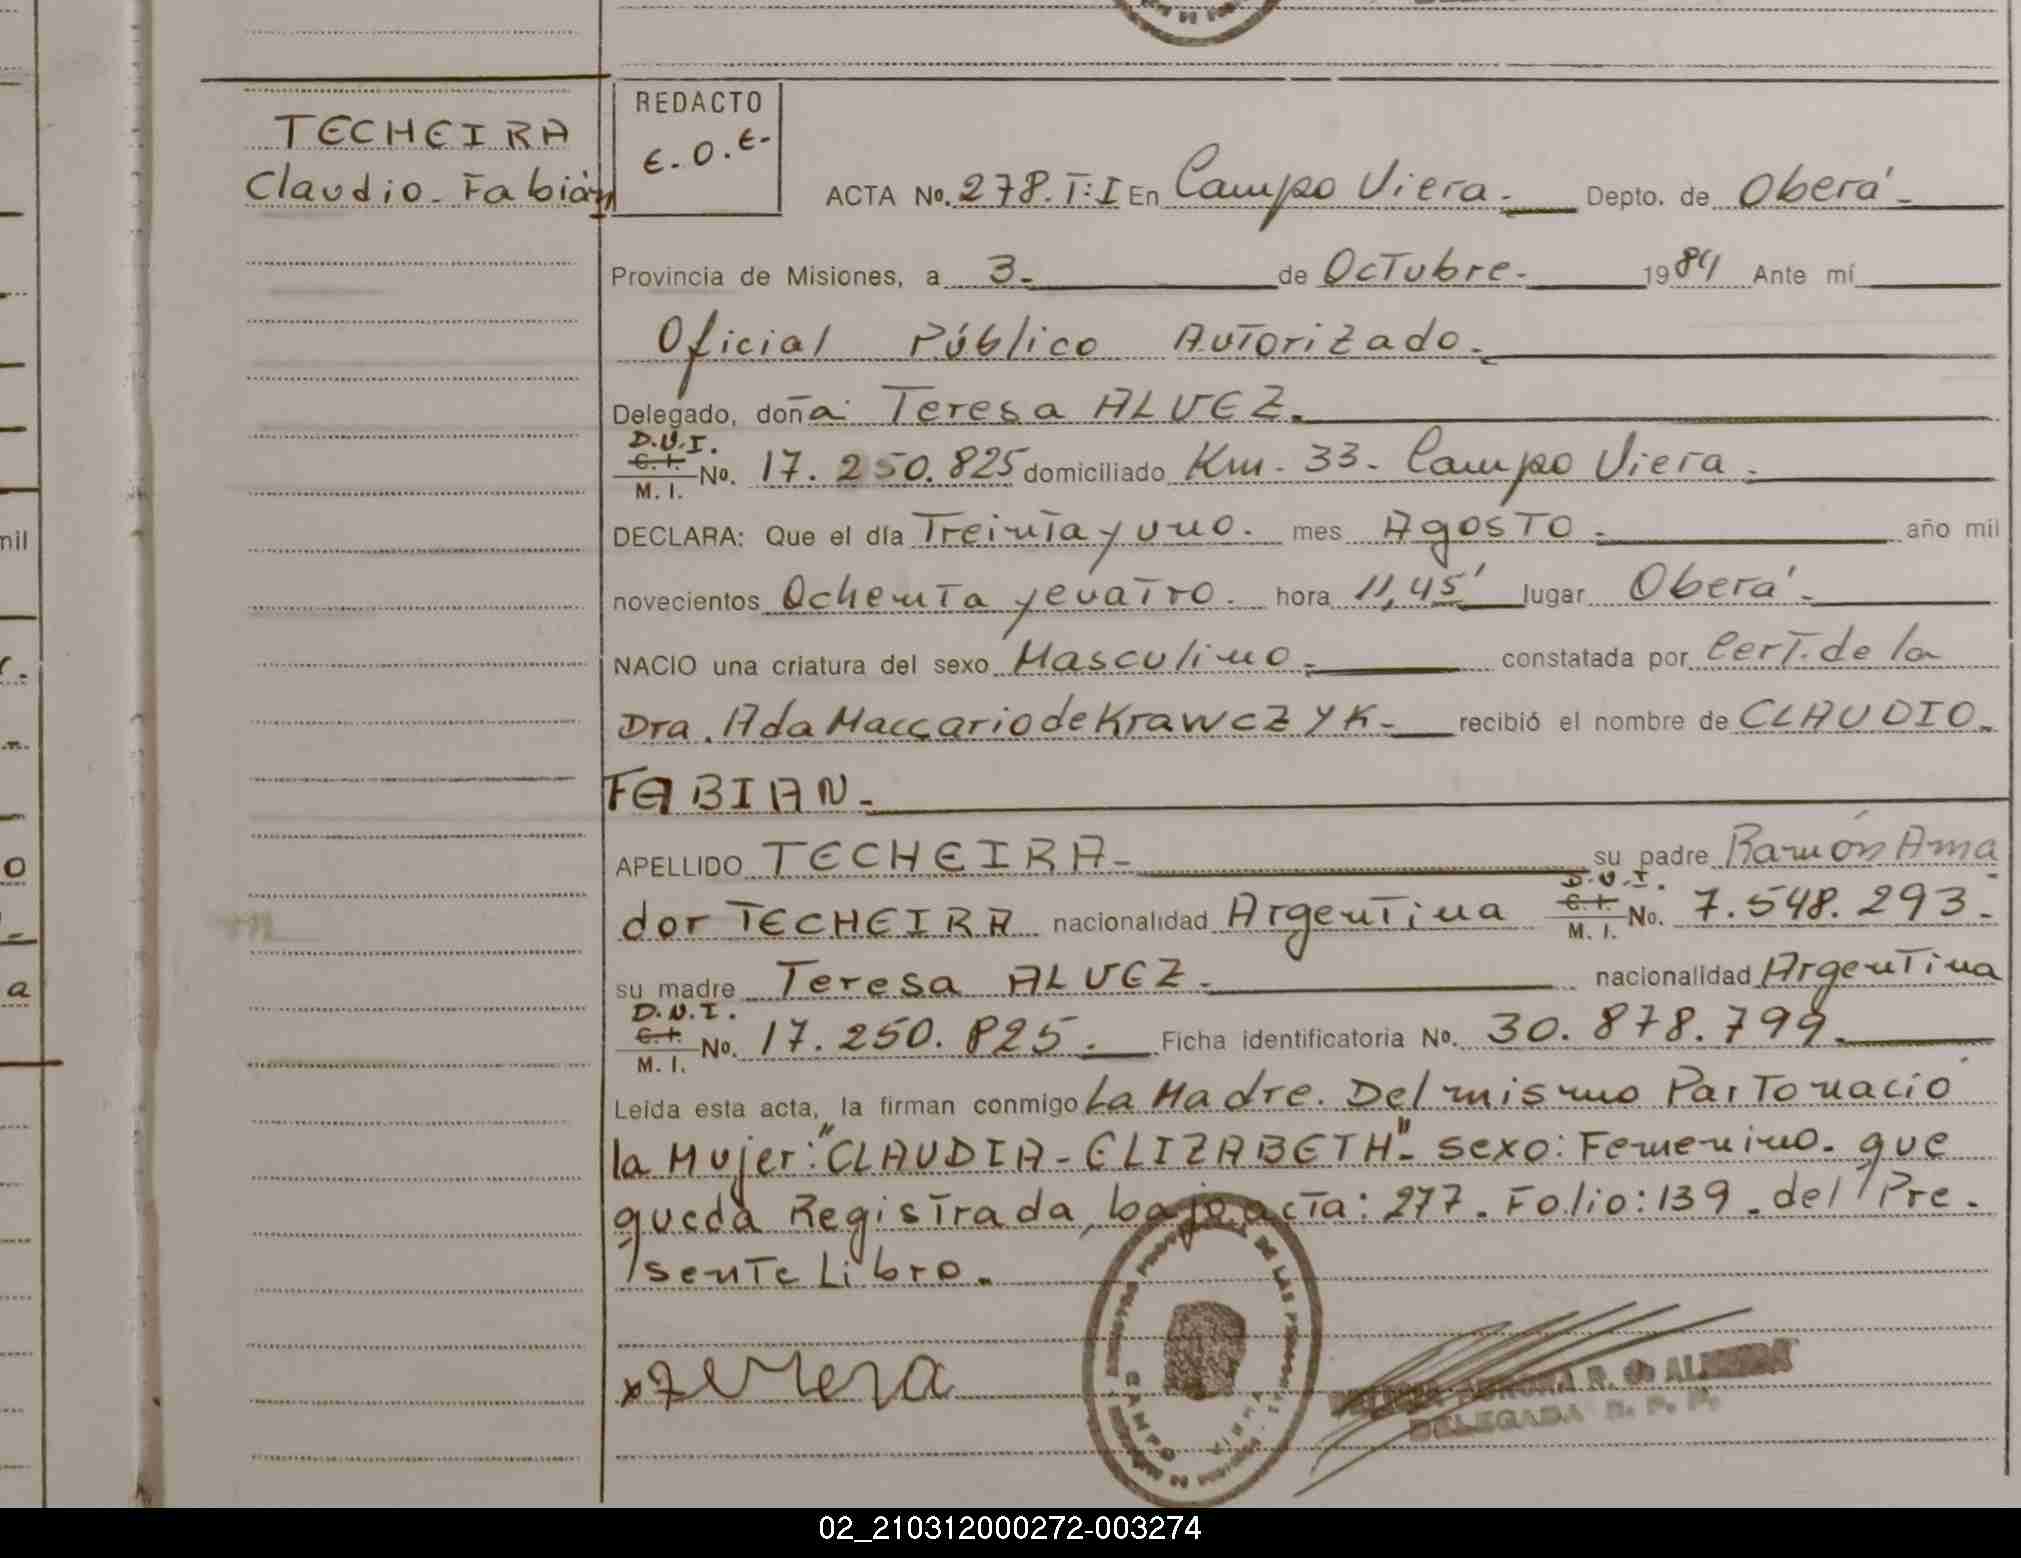 TECHEIRA
Claudio-Fabián
REDACTO
E.O.E-
ACTA No. 278.T:I En Campo Viera.- Depto. de Oberá-
Provincia de Misiones, a 3.- de Octubre.- 1984 Ante mí
Oficial Público Autorizado.-
Delegado, doña: Teresa ALVEZ.-
D.N.I.
C.I.
M. I. No. 17.250.825 domiciliado Km. 33. Campo Viera.-
DECLARA: Que el día Treinta y uno. mes Agosto.- año mil
novecientos Ochenta y cuatro. hora 11,45' lugar Oberá.-
NACIO una criatura del sexo Masculino.- constatada por Cert. de la
Dra. Ada Maccario de Krawczyk.- recibió el nombre de CLAUDIO-
FABIAN.-
APELLIDO TECHEIRA- su padre Ramón Ama
D.N.I.
C.I.
dor TECHEIRA nacionalidad Argentina M. I. No. 7.548.293.-
su madre Teresa ALVEZ.- nacionalidad Argentina
D.N.I.
C.I.
M. I. No. 17.250.825.- Ficha identificatoria No. 30.878.799.-
Leída esta acta, la firman conmigo La Madre. Del mismo Parto nació
la Mujer: "CLAUDIA-ELIZABETH"- sexo: Femenino. que
queda Registrada, bajo acta: 277. Folio: 139. del Pre-
sente Libro.-
DE LAS
CAMPO VIERA
R. de ALMEIDA
DELEGADA R. P. P.
02_210312000272-003274